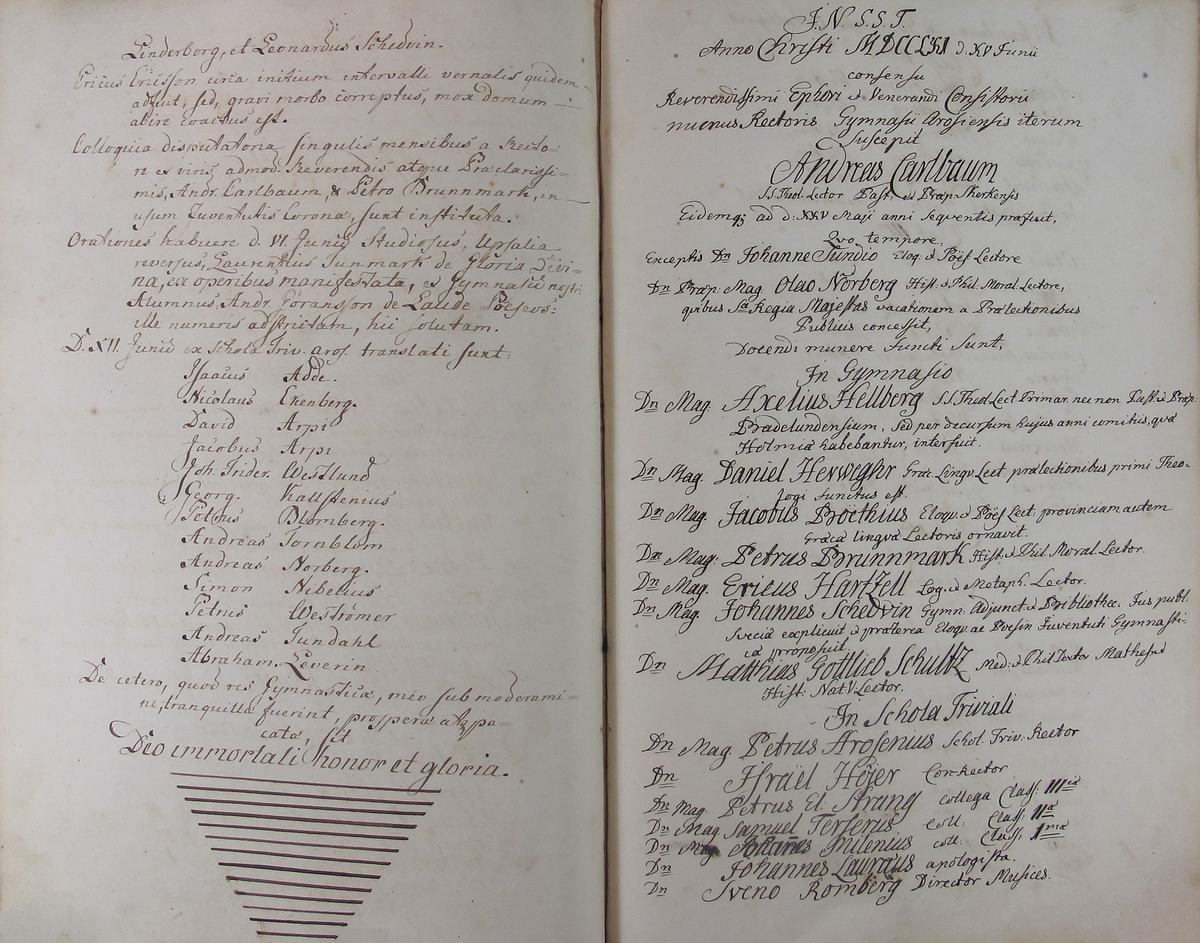 Linderborg, et Leonardus Schedvin.
Ericus Ericsson circa initium intervalli vernalis quidem
adfuit, sed, gravi morbo correptus, mox domum
abire coactus est.
Colloquia disputatoria singulis mensibus a Recto-
re ex viris admod. Reverendis atque Præclarissi-
mis, Andr. Carlbaum, & Petro Brunnmark, in
usum Juventutis Corona, sunt instituta.
Orationes habuere d. VI Junii Studiosus, Upsalia
reversus, Laurentius Tunmark de Gloria Divi-
na, ex operibus manifestata, et Gymnasii nostri
Alumnus Andr. Joransson de Laude Poëseos:
ille numeris adstrictam, hic solutam.
D. XII. Junii ex Schola Triv. aros. translati sunt:
Isaacus Adde.
Nicolaus Ekenberg.
David Arpi
Jacobus Arpi
Joh. Frider. Westlund
Georg. Kallsenius
Petrus Blomberg.
Andreas Tornblom
Andreas Norberg.
Simon Nibelius
Petrus Weströmer
Andreas Sundahl
Abraham Leverin
De cetero, quod res Gymnasticæ, meo sub moderami-
ne, tranquillæ fuerint, prosperæ atq; pa-
catæ, sit
Deo immortali honor et gloria.
J. N. S. S. T.
Anno Christi MDCCLXI d. XV Junii
consensu
Reverendissimi Ephori & Venerandi Consistorii
munus Rectoris Gymnasii Arosiensis iterum
suscepit
Andreas Carlbaum
S.S. Theol. Lector Past. & Præp.
Eidemq; ad d: XXV Maji anni sequentis præfuit,
Qvo tempore,
Exceptis Dn Johanne Sundio Eloq. & Poës Lectore
Dn Præp. Mag. Olao Norberg Hist. & Phil. Moral. Lectore,
quibus Sa Regia Majestas vacationem a Prælectionibus
Publicis concessit,
Docendi munere functi sunt,
In Gymnasio
Dn Mag. Axelius Hellberg S.S. Theol. Lect Primar. nec non Past. & Præp.
Bradelundensium, sed per decursum hujus anni comitiis, quæ
Holmiæ habebantur, interfuit.
Dn Mag. Daniel Herweghr Græc. Lingv Lect prælectionibus primi Theo-
logi functus est.
Dn Mag. Jacobus Boëthius Eloqv. & Poës Lect. provinciam autem
Græcæ lingvæ Lectoris ornavit.
Dn Mag: Petrus Brunnmark Hist. & Phil. Moral Lector.
Dn Mag. Ericus Hartzell Log. & Metaph. Lector.
Dn Mag. Johannes Schedvin Gymn. Adjunct. & Bibliothec. Jus publ.
Sveciæ explicuit & præterea Eloqv. ac Poësin Juventuti Gymnasti-
cæ proposuit
Dn Matthias Gottlieb Schultz Med: & Phil Doctor Matheseos &
Hist: Nat V. Lector.
In Schola Triviali
Dn Mag. Petrus Arosenius Schol. Triv. Rector
Dn Israël Höjer Con-Rector
Dn Mag Petrus El. Strang collega Class: IIIiæ
Dn Mag Samuel Terserus coll: Class: IIæ
Dn Mag Johannes coll: Class: Imæ
Dn Johannes Lauræus apologista.
Dn Sveno Romberg Director Musices.